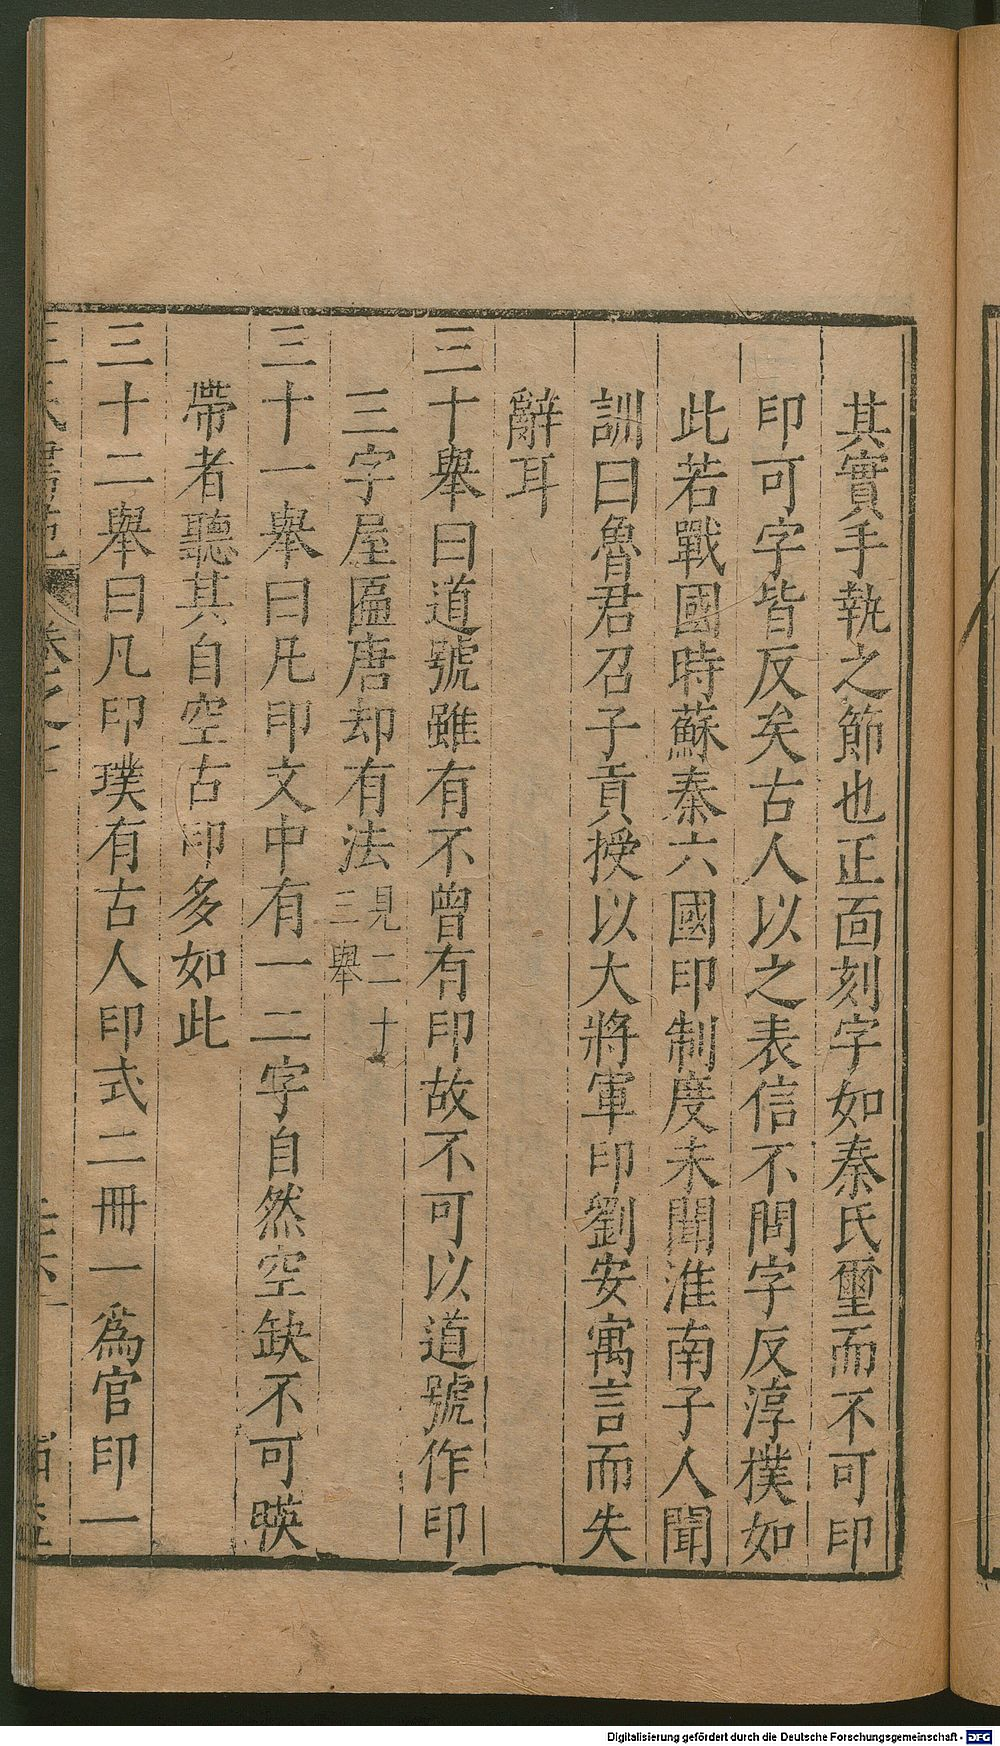 其實手執之節也正面刻字如秦氏璽而不可印
印可字皆反矣古人以之表信不問字反淳樸如
此若戰國時蘇秦六國印制度未聞淮南子人聞
訓曰魯君召子貢授以大將軍印劉安寓言而失
辭耳
三十舉曰道號雖有不曾有印故不可以道號作印
三字屋匾唐却有法見二十
三舉
三十一舉曰凡印文中有一二字自然空缺不可暎
帶者聽其自空古印多如此
三十二舉曰凡印璞有古人印式二冊一爲官印一
卷之
Digitalisierung gefördert durch die Deutsche Forschungsgemeinschaft - DFG